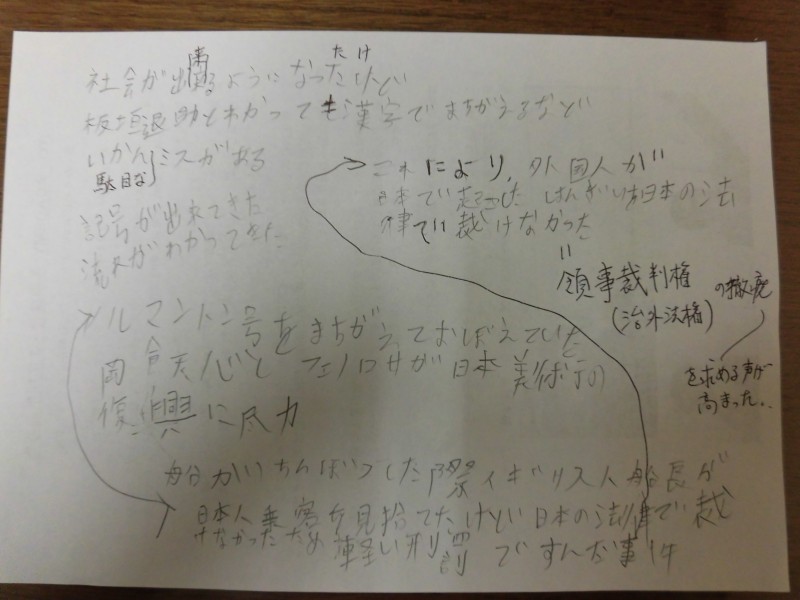 社会が出来るようになったけど
たけ
板垣退助とわかっても漢字でまちがえるなど
いかんミスがある
駄目な
記号が出来てきた
流れがわかってきた
これにより、外国人が
日本で起こした はんざいを日本の法
律では裁けなかった
〃
領事裁判権
(治外法権)
の撤廃
を求める声が
高まった..
ノルマントン号をまちがえておぼえていた
岡倉天心とフェノロサが日本美術の
復興に尽力
船がちんぼつした際イギリス人船長が
日本人乗客を見捨てたけど日本の法律で裁
けなかったため軽い刑罰ですんだ事件